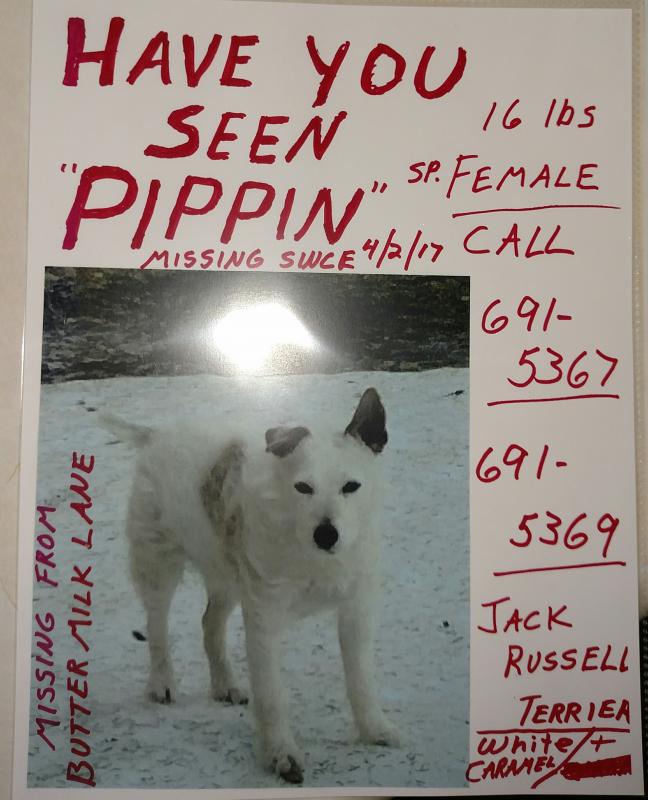 HAVE YOU
SEEN
"PIPPIN"
MISSING SINCE 4/2/17
16 lbs
SP. FEMALE
CALL
691-
5367
691-
5369
JACK
RUSSELL
TERRIER
White/+
CARAMEL/
MISSING FROM
BUTTER MILK LANE